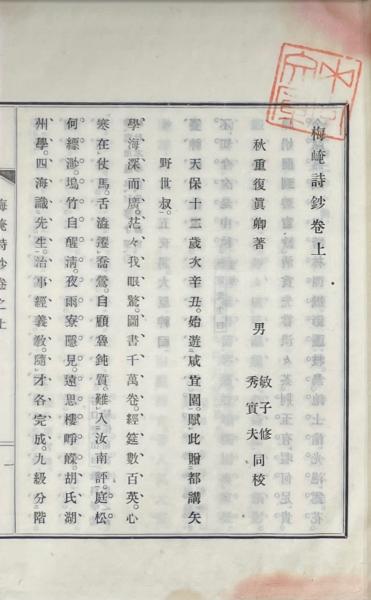 梅崦詩鈔卷上
秋重復眞卿著　男　敏子修
秀實夫　同校
天保十二歲次辛丑。始遊咸宜園。賦此贈都講矢
野世叔。
學海深而廣。茫々我眼驚。圖書千萬卷。經筵數百英。心
寒在仗馬。舌澁遷喬鶯。自顧魯鈍質。難入汝南評。庭松
何縹渺。塢竹自醒清。夜雨寮隱見。遠思樓崢嶸。胡氏湖
州學。四海識先生。治事經義敎。隨才各完成。九級分階
梅崦詩鈔卷之上
一